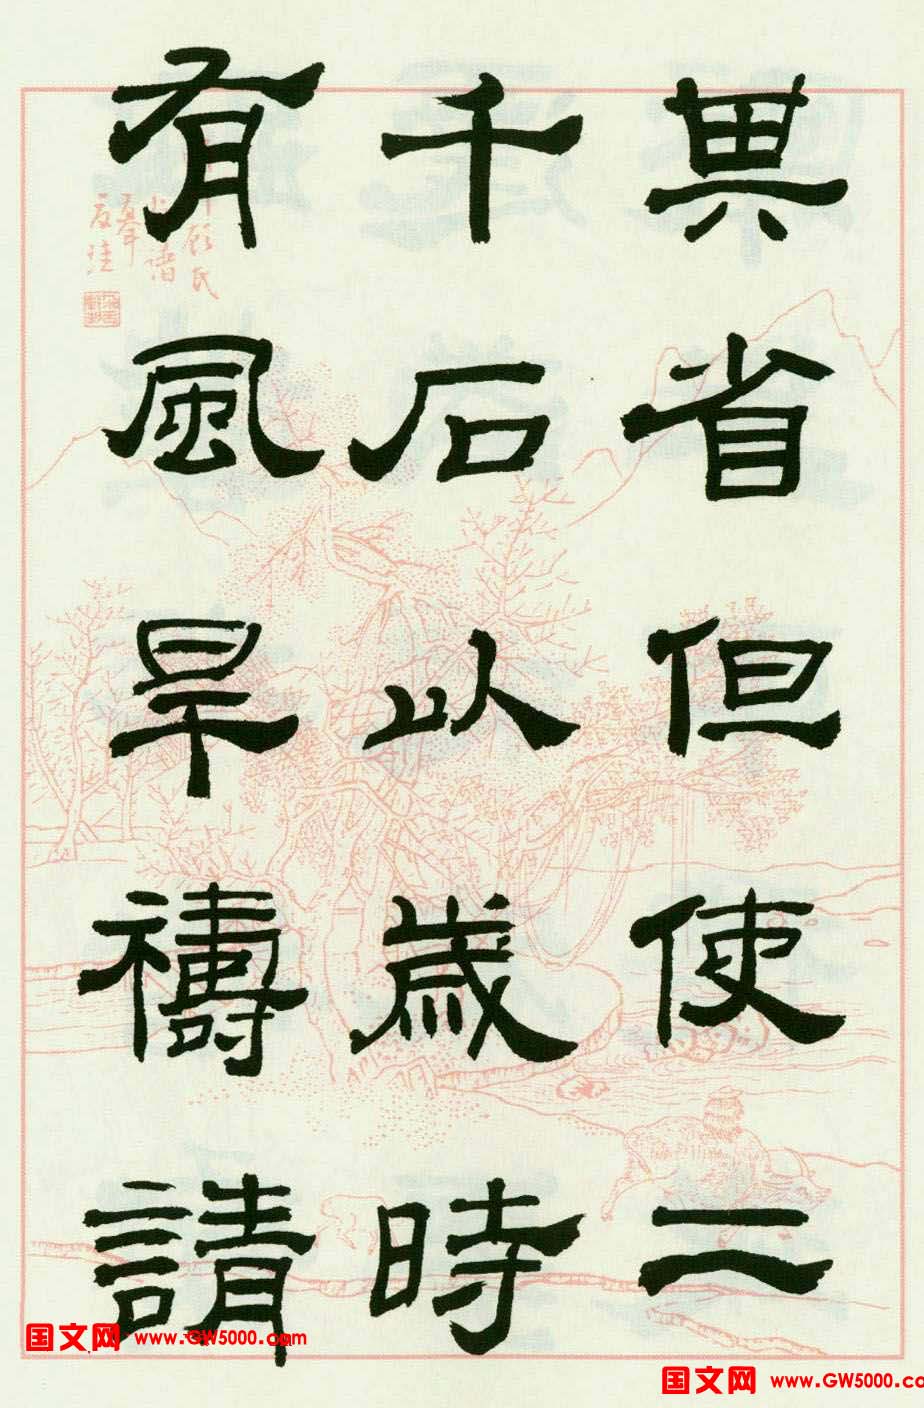 其省但使二
千石以歲時
有風旱禱請
国文网 www.GW5000.com
国文网 www.GW5000.co